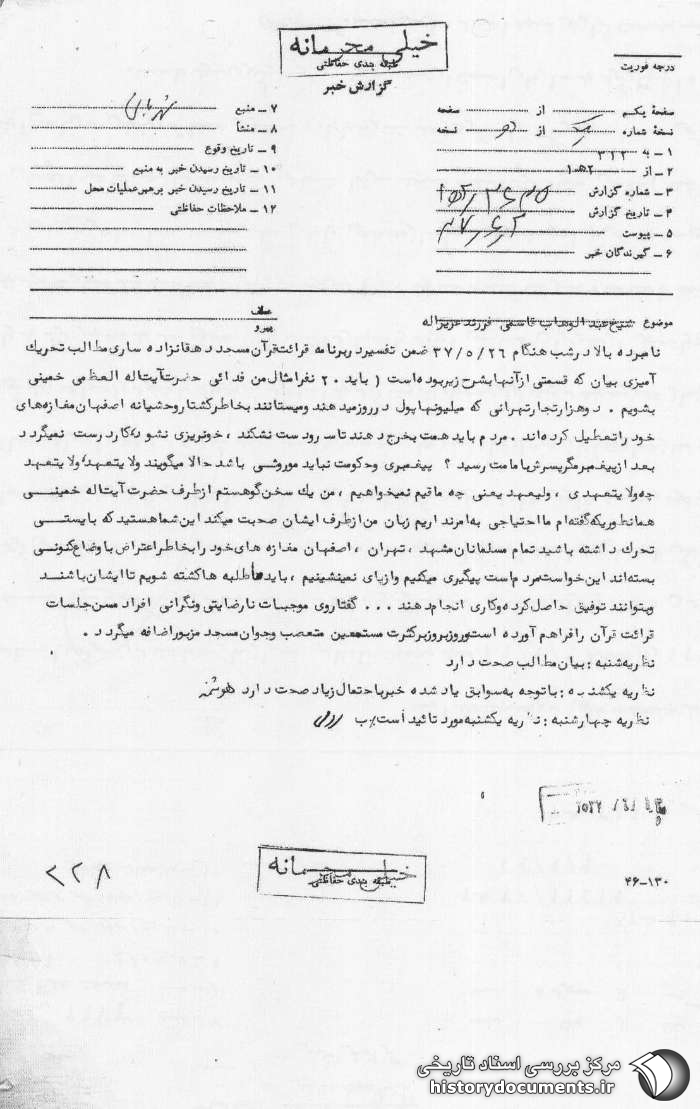 خیلی محرمانه
طبقه بندی حفاظتی
گزارش خبر
درجه فوریت
صفحهٔ یکم از صفحه
نسخهٔ شماره یک از دو نسخه
۱ ــ به ۳۱۲
۲ ــ از ۲ھ۱
۳ ــ شماره گزارش
۴ ــ تاریخ گزارش
۵ ــ پیوست
۶ ــ گیرندگان خبر
۷ ــ منبع
۸ ــ منشأ
۹ ــ تاریخ وقوع
۱۰ ــ تاریخ رسیدن خبر به منبع
۱۱ ــ تاریخ رسیدن خبر برهبر عملیات محل
۱۲ ــ ملاحظات حفاظتی
موضوع شیخ عبدالوهاب قاسمی فرزند عزیزاله
عطف
پیرو
نامبرده بالا در شب هنگام ۳۷/۵/۲٦ ضمن تفسیر در برنامه قرائت قرآن مسجد دهقانزاده ساری مطالب تحریك
آمیزی بیان که قسمتی از آنها بشرح زیر بوده است ( باید ۲۰ نفر امثال من فدائی حضرت آیت‌اله العظمی خمینی
بشویم . دوهزار تجار تهرانی که میلیونها پول در روز میدهند و میستانند بخاطر کشتار وحشیانه اصفهان مغازه‌های
خود را تعطیل کرده‌اند . مردم باید همت بخرج دهند تا سر و دست نشکند ، خونریزی نشود کار درست نمیگردد
بعد از پیغمبر مگر پسرش بامامت رسید ؟ پیغمبری وحکومت نباید موروثی باشد حالا میگویند ولایتعهد، ولایتعهد
چه ولایتعهدی ، ولیعهد یعنی چه ما قیم نمیخواهیم ، من یك سخن‌گو هستم از طرف حضرت آیت‌اله خمینی
همانطوریکه گفته‌ام ما احتیاجی به امرنداریم زبان من از طرف ایشان صحبت میکند این شما هستید که بایستی
تحرك داشته باشید تمام مسلمانان مشهد ، تهران ، اصفهان مغازه های خود را بخاطر اعتراض باوضاع کنونی
بسته‌اند این خواست مردم است پیگیری میکنیم و از پای نمینشینیم ، باید ما طلبه ها کشته شویم تا ایشان باشند
وبتوانند توفیق حاصل کرده وکاری انجام دهند . . . گفتار وی موجبات نارضایتی ونگرانی افراد مسن جلسات
قرائت قرآن را فراهم آورده است و روز بروز بر کثرت مستمعین متعصب وجوان مسجد مزبور اضافه میگردد .
نظریه شنبه : بیان مطالب صحت دارد
نظریه یکشنبه : با توجه به سوابق یاد شده خبر با احتمال زیاد صحت دارد
نظریه چهارشنبه : نظریه یکشنبه مورد تائید است ب
خیلی محرمانه
طبقه بندی حفاظتی
۲۲۸
۴۶-۱۳۰
مرکز بررسی اسناد تاریخی
historydocuments.ir